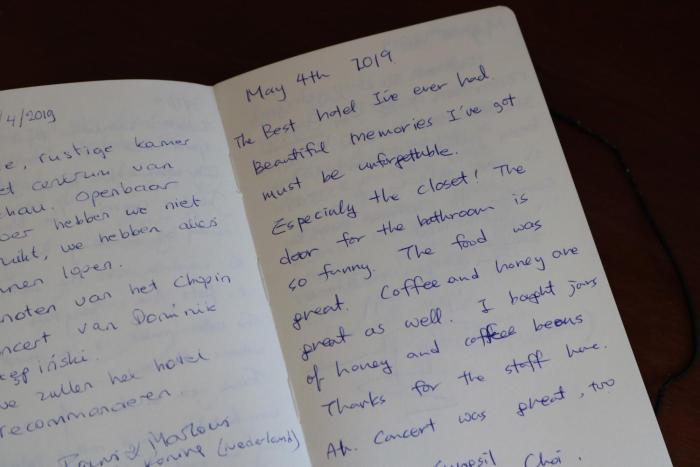 /4/2019
e, rustige kamer
et centrum van
chau. Openbaar
oer hebben we niet
ruikt, we hebben alles
nnen lopen.
noten van het Chopin
ncert van Dominik
ępiński.
we zullen het hotel
recommanderen.
(Nederland)
May 4th 2019
The Best hotel I've ever had.
Beautiful memories I've got
must be unforgettable.
Especialy the closet! The
door for the bathroom is
so funny. The food was
great. Coffee and honey are
great as well. I bought jars
of honey and coffee beans
Thanks for the staff here.
Ah. Concert was great, too
Choi.